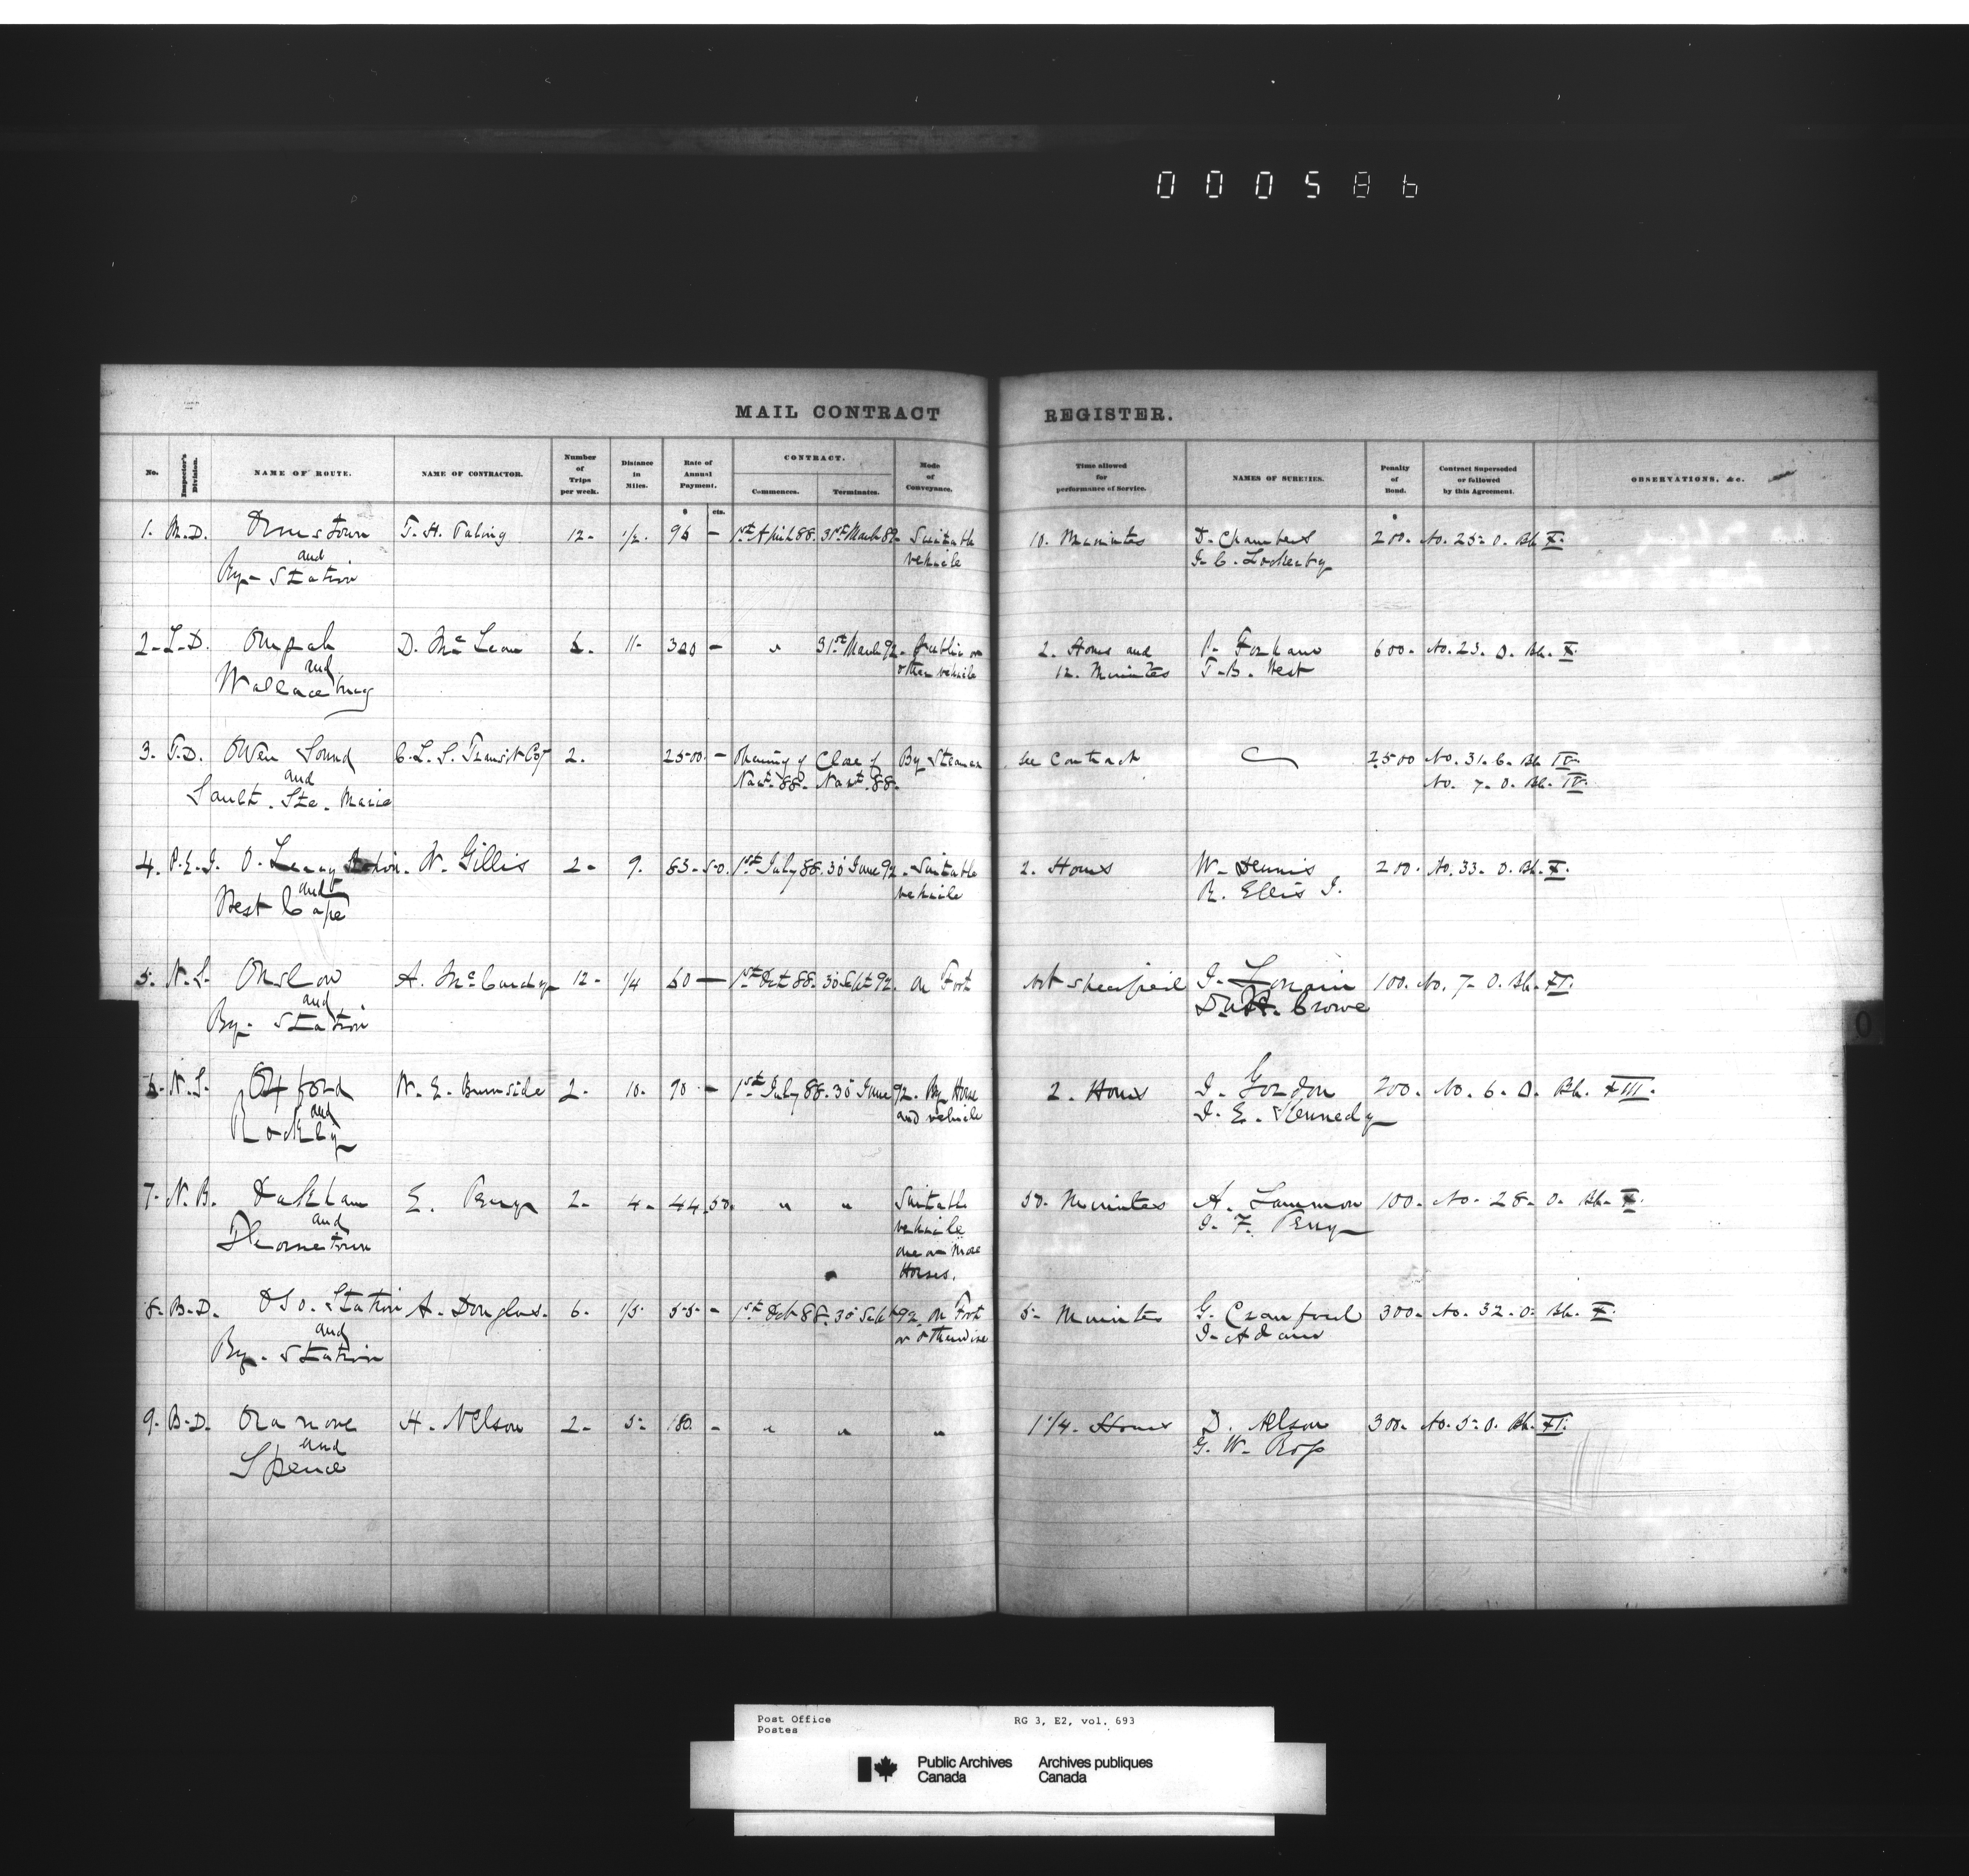 000586
MAIL CONTRACT REGISTER.
No. Inspector's Division. NAME OF ROUTE. NAME OF CONTRACTOR. Number of Trips per week. Distance in Miles. Rate of Annual Payment. CONTRACT. Commences. Terminates. Mode of Conveyance. Time allowed for performance of Service. NAMES OF SURETIES. Penalty of Bond. Contract Superseded or followed by this Agreement. OBSERVATIONS, &c.
$ cts.
1. M.D. Ormstown T. H. 12- 1/2. 96 - 1st April 88. 31st March 89- Suitable 10. Minutes D. Chambers 200. No. 25- O. Bk. X.
and vehicle J. C. Lockerby
Ry- Station
2- L-D. Ompah D. McLean 6. 11- 300 - " 31st March 92- Public or 2. Hours and 600- No. 23. O. Bk. X.
and other vehicle 12. Minutes T. B. West
Wallacebury
3. T.D. Owen Sound G.L.S. Transit Coy 2. 2500. - Opening of Close of By Steamer See Contract 2500 No. 31. 6. Bk IV.
and Navt. 88. Navt. 88. No. 7- O. Bk. IV.
Sault. Ste. Marie
4. P.E.I. O'Leary Station. W. Gillis 2- 9. 83. 50. 1st July 88. 30 June 92. Suitable 2. Hours W. Dennis 200. No. 33- O. Bk. X.
and vehicle R. Ellis J.
West Cape
5. N.S. Onslow A. McCurdy 12- 1/4 60 — 1st Oct 88. 30 Sept 92. On Foot not specified J. 100. No. 7- O. Bk. XI.
and Crowe
Ry- Station
6. N.S. Oxford W. E. Burnside 2- 10. 90 - 1st July 88. 30 June 92. By Horse 2. Hours J. Gordon 200. No. 6. O. Bk. XIII.
and and vehicle J. E. Kennedy
Rockley
7- N.B. Oakham E. Perry 2- 4- 44.50. " " Suitable 50. Minutes A. Lammon 100- No- 28- O. Bk- X.
and vehicle J. F. Perry
one or more
Horses.
8- B-D. Oso. Station A. Douglas. 6. 1/5 55- - 1st Oct 88. 30 Sept 92. On Foot 5- Minutes G. Crawford 300- No. 32. O. Bk. X.
and or otherwise J. Adam
Ry. Station
9. B-D. Oranove H. Nelson 2- 5- 180. - " " " 1 1/4. Hours D. Nelson 300. No. 5- O. Bk. XI.
and G. W. Ross
Spence
O
Post Office RG 3, E2, vol. 693
Postes
Public Archives Archives publiques
Canada Canada